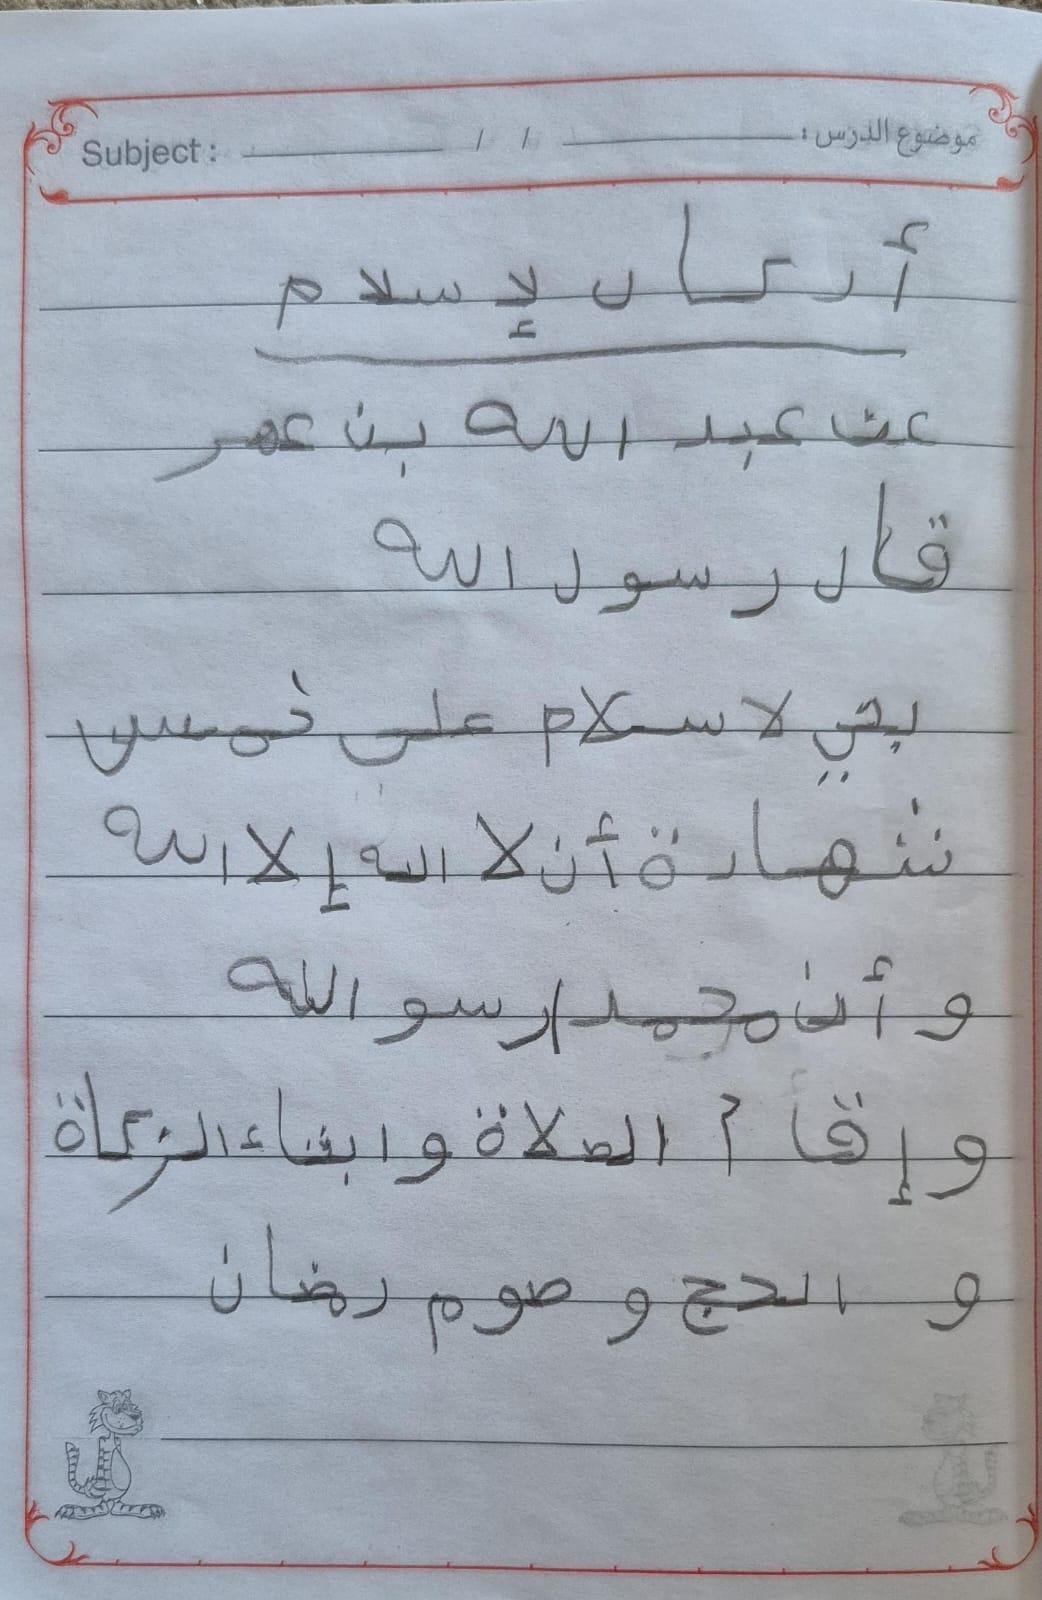 موضوع الدرس : / / Subject :
أركان لإسلام
عن عبد الله بن عمر
قال رسول الله
بني لاسلام على خمس
شهادة أن لا اله إلا الله
و أن محمدا رسو الله
و إقام الصلاة و ابتاء الزكاة
و الحج و صوم رمضان